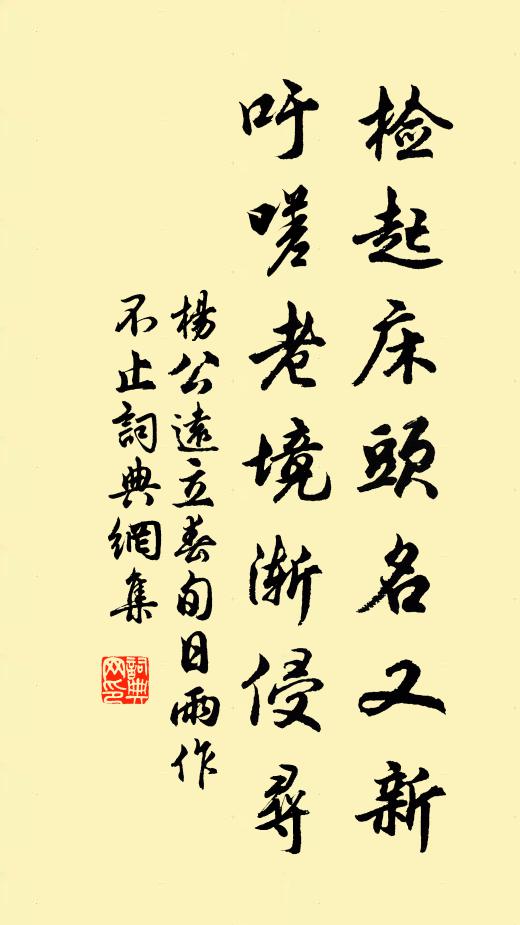 检起床頭名又新
吁嗟老境漸侵尋
楊公遠立春旬日雨作
不止詞典網集
詞典网印